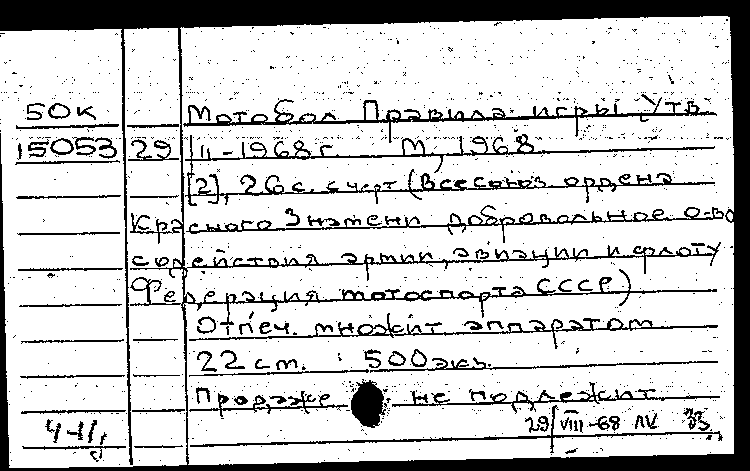 50к Мотобол Правила игры Утв
15053 29 III-1968 г. М, 1968
[2], 26 с. с черт (Всесоюз ордена
Красного Знамени добровольное о-во
содействия армии, авиации и флоту
Федерация мотоспорта СССР)
Отпеч. множит аппаратом
22 см. 500 экз.
Продаже не подлежит.
29/VIII-68